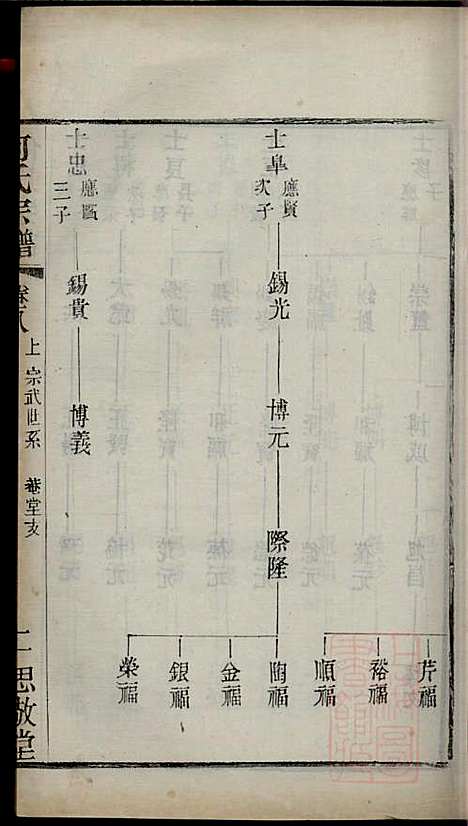 士阜
應賢
次子
錫光
博元
際隆
芹福
裕福
順福
陶福
金福
銀福
榮福
士忠
應賢
三子
錫貴
博義
何氏宗譜
卷八
上
宗武世系
菴堂支
思敬堂